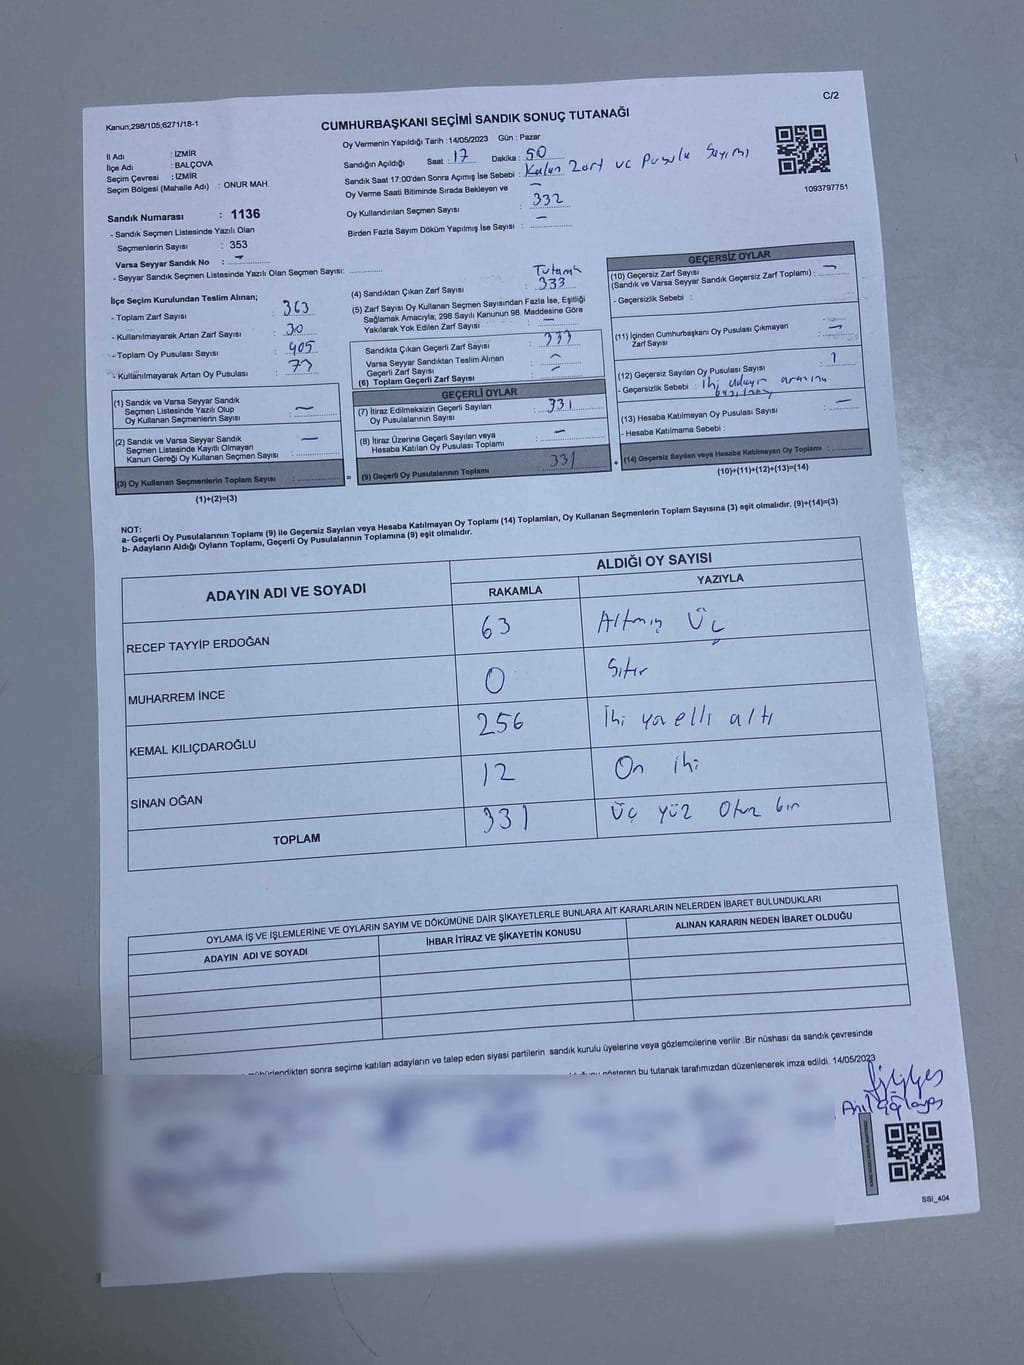 C/2
Kanun,298/105,6271/18-1
CUMHURBAŞKANI SEÇİMİ SANDIK SONUÇ TUTANAĞI
Oy Vermenin Yapıldığı Tarih :14/05/2023 Gün : Pazar
İl Adı : İZMİR
İlçe Adı : BALÇOVA
Seçim Çevresi : İZMİR
Seçim Bölgesi (Mahalle Adı) : ONUR MAH.
Sandığın Açıldığı Saat : 17 Dakika : 50
Sandık Saat 17:00'den Sonra Açımış İse Sebebi : Kalan Zarf ve Pusula Sayımı
Oy Verme Saati Bitiminde Sırada Bekleyen ve
Oy Kullandırılan Seçmen Sayısı : 332
Birden Fazla Sayım Döküm Yapılmış İse Sayısı : –
1093797751
Sandık Numarası : 1136
- Sandık Seçmen Listesinde Yazılı Olan
Seçmenlerin Sayısı : 353
Varsa Seyyar Sandık No : –
- Seyyar Sandık Seçmen Listesinde Yazılı Olan Seçmen Sayısı:
İlçe Seçim Kurulundan Teslim Alınan;
- Toplam Zarf Sayısı : 363
- Kullanılmayarak Artan Zarf Sayısı : 30
- Toplam Oy Pusulası Sayısı : 405
- Kullanılmayarak Artan Oy Pusulası : 73
(1) Sandık ve Varsa Seyyar Sandık
Seçmen Listesinde Yazılı Olup
Oy Kullanan Seçmenlerin Sayısı : –
(2) Sandık ve Varsa Seyyar Sandık
Seçmen Listesinde Kayıtlı Olmayan
Kanun Gereği Oy Kullanan Seçmen Sayısı : –
(3) Oy Kullanan Seçmenlerin Toplam Sayısı :
(1)+(2)=(3)
Tutanak
(4) Sandıktan Çıkan Zarf Sayısı : 333
(5) Zarf Sayısı Oy Kullanan Seçmen Sayısından Fazla İse, Eşitliği
Sağlamak Amacıyla; 298 Sayılı Kanunun 98. Maddesine Göre
Yakılarak Yok Edilen Zarf Sayısı : –
Sandıkta Çıkan Geçerli Zarf Sayısı : 333
Varsa Seyyar Sandıktan Teslim Alınan
Geçerli Zarf Sayısı : –
(6) Toplam Geçerli Zarf Sayısı : –
GEÇERLİ OYLAR
(7) İtiraz Edilmeksizin Geçerli Sayılan
Oy Pusulalarının Sayısı : 331
(8) İtiraz Üzerine Geçerli Sayılan veya
Hesaba Katılan Oy Pusulası Toplamı : –
(9) Geçerli Oy Pusulalarının Toplamı : 331
GEÇERSİZ OYLAR
(10) Geçersiz Zarf Sayısı
(Sandık ve Varsa Seyyar Sandık Geçersiz Zarf Toplamı) : –
- Geçersizlik Sebebi :
(11) İçinden Cumhurbaşkanı Oy Pusulası Çıkmayan
Zarf Sayısı : –
(12) Geçersiz Sayılan Oy Pusulası Sayısı : 1
- Geçersizlik Sebebi : İki adayın arasına
(13) Hesaba Katılmayan Oy Pusulası Sayısı : –
- Hesaba Katılmama Sebebi :
+ (14) Geçersiz Sayılan veya Hesaba Katılmayan Oy Toplamı :
(10)+(11)+(12)+(13)=(14)
NOT:
a- Geçerli Oy Pusulalarının Toplamı (9) ile Geçersiz Sayılan veya Hesaba Katılmayan Oy Toplamı (14) Toplamları, Oy Kullanan Seçmenlerin Toplam Sayısına (3) eşit olmalıdır. (9)+(14)=(3)
b- Adayların Aldığı Oyların Toplamı, Geçerli Oy Pusulalarının Toplamına (9) eşit olmalıdır.
ADAYIN ADI VE SOYADI ALDIĞI OY SAYISI
RAKAMLA YAZIYLA
RECEP TAYYİP ERDOĞAN 63 Altmış Üç
MUHARREM İNCE 0 Sıfır
KEMAL KILIÇDAROĞLU 256 İki yüz elli altı
SİNAN OĞAN 12 On iki
TOPLAM 331 Üç yüz Otuz bir
OYLAMA İŞ VE İŞLEMLERİNE VE OYLARIN SAYIM VE DÖKÜMÜNE DAİR ŞİKAYETLERLE BUNLARA AİT KARARLARIN NELERDEN İBARET BULUNDUKLARI
ADAYIN ADI VE SOYADI İHBAR İTİRAZ VE ŞİKAYETİN KONUSU ALINAN KARARIN NEDEN İBARET OLDUĞU
mühürlendikten sonra seçime katılan adayların ve talep eden siyasi partilerin sandık kurulu üyelerine veya gözlemcilerine verilir .Bir nüshası da sandık çevresinde
gösteren bu tutanak tarafımızdan düzenlenerek imza edildi. 14/05/2023
SSİ_404